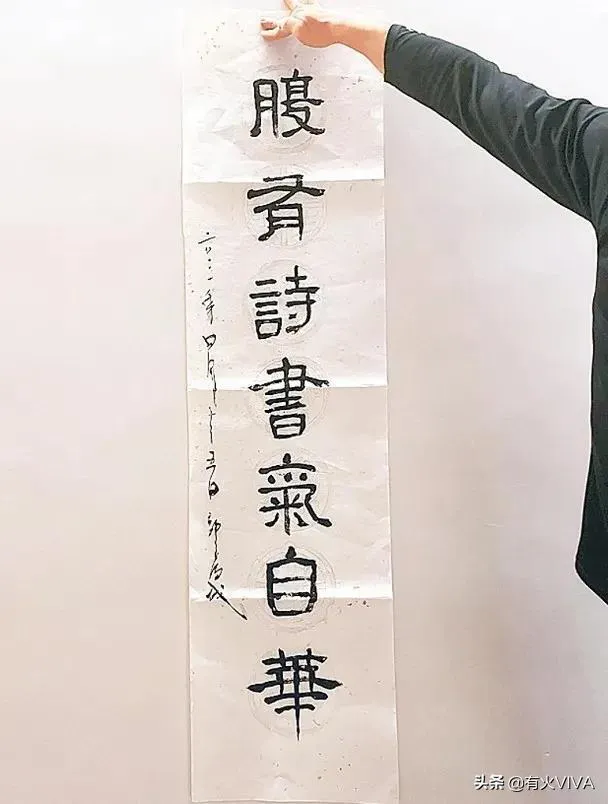 腹有詩書氣自華
二〇二一年四月二十五日
头条 @有火VIVA